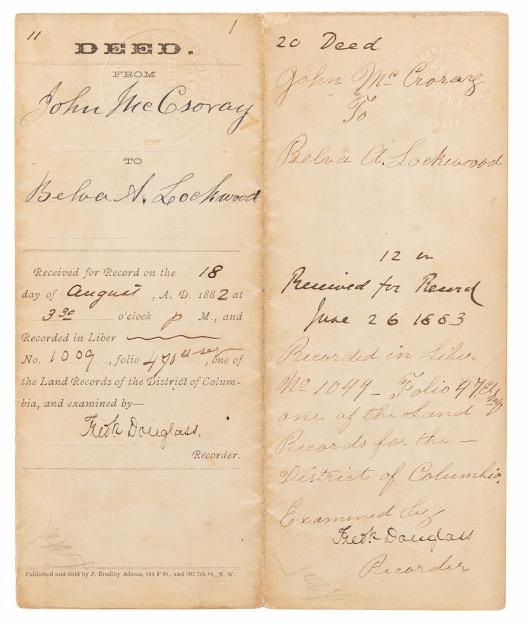 11
1
DEED.
FROM
John McCroray
TO
Belva A. Lockwood
Received for Record on the 18
day of August, A. D. 1882 at
3 30 o'clock P M., and
Recorded in Liber
No. 1009, folio 471 et seq, one of
the Land Records of the District of Colum-
bia, and examined by—
Fredk Douglass,
Recorder.
Published and Sold by J. Bradley Adams, 814 F St., and 605 7th St., N. W.
20 Deed
John McCroray
To
Belva A. Lockwood
12 m
Received for Record
June 26 1883
Recorded in Liber
No 1049 - Folio 47 et seq
one of the Land
Records for the -
District of Columbia.
Examined by
Fredk Douglass
Recorder